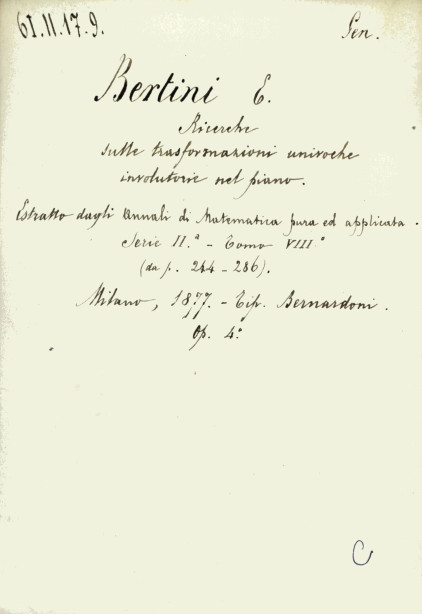 61.II.17.9.
Gen.
Bertini E.
Ricerche
sulle trasformazioni univoche
involutorie nel piano.
Estratto dagli Annali di Matematica pura ed applicata.
Serie II.ª - Tomo VIII.º
(da p. 244 - 286).
Milano, 1877. - Tip. Bernardoni.
Op. 4.º
C